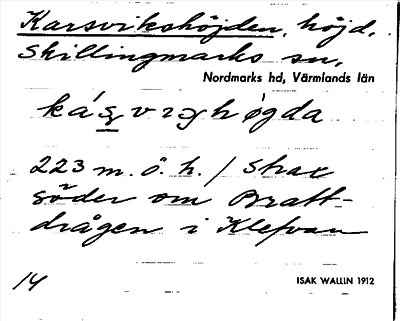 Karsvikshöjden, höjd,
Skillingmarks sn,
Nordmarks hd, Värmlands län
223 m. ö. h. / Strax
söder om Bratt-
drågen i Klefvan
14
ISAK WALLIN 1912